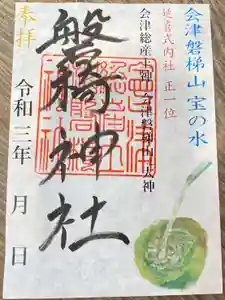 会津磐梯山 宝の水
延喜式内社 正一位
会津総産土神 会津磐梯山大神
磐椅神社
奉拝
令和三年 月 日